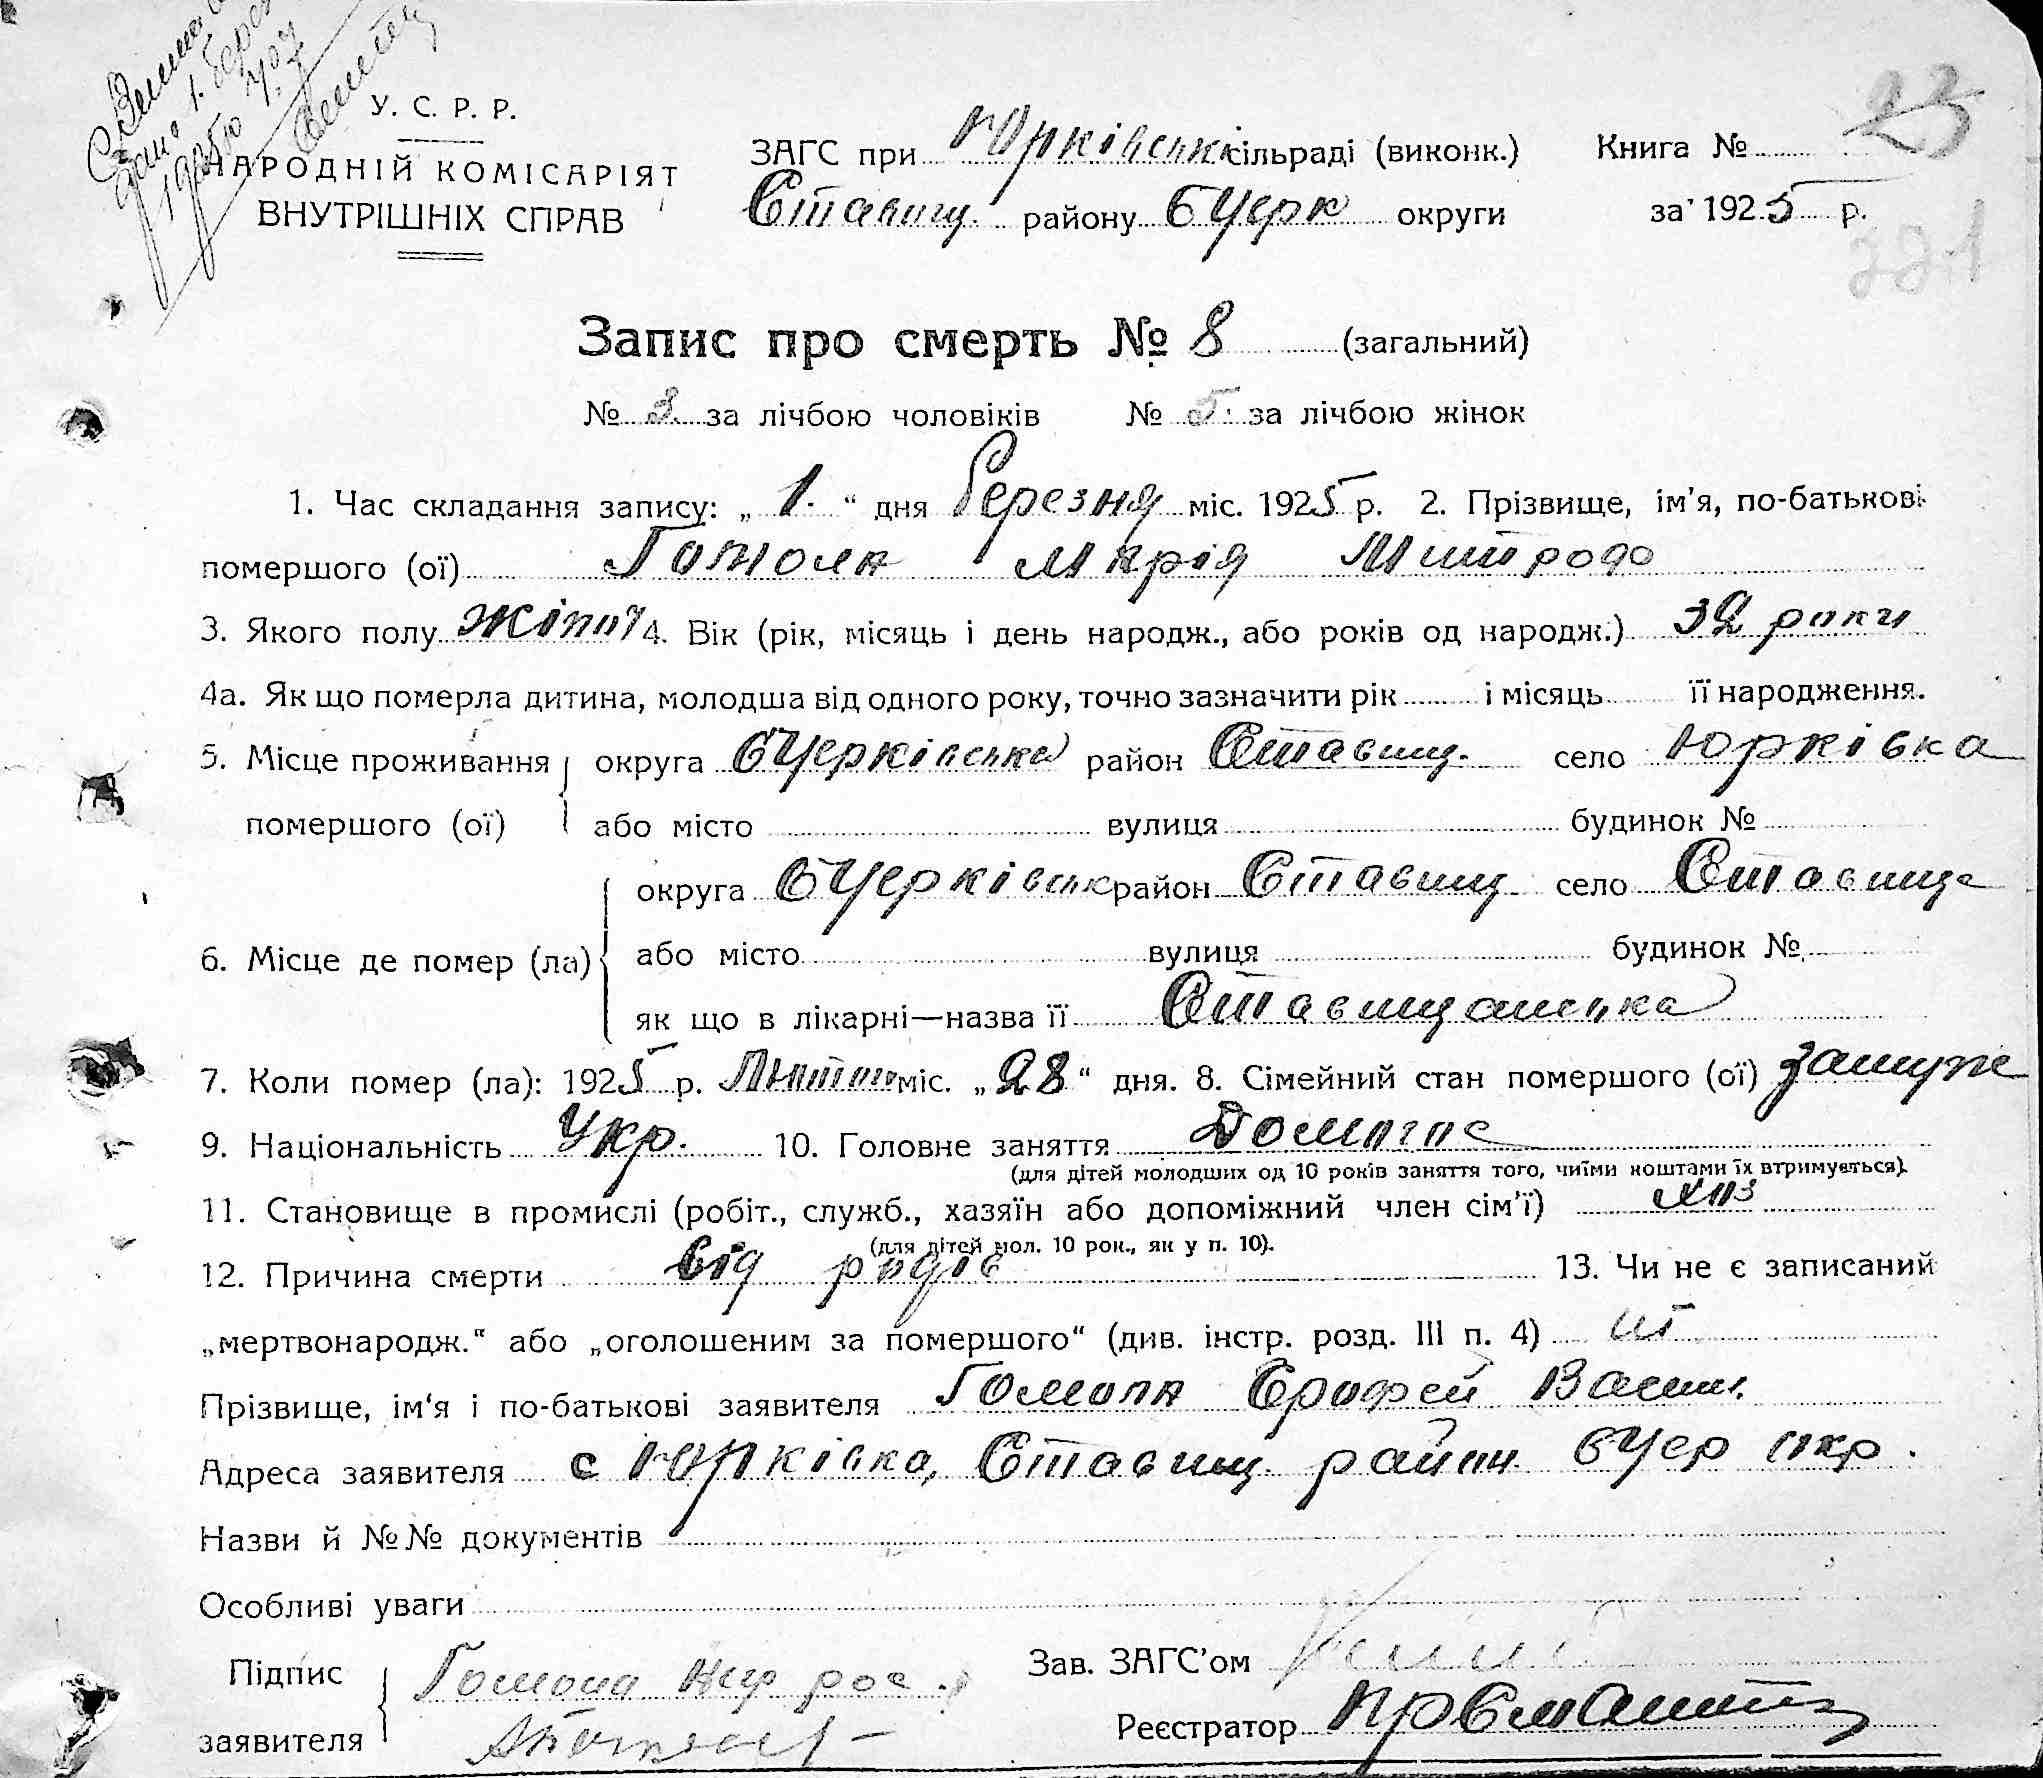 У. С. Р. Р.
НАРОДНІЙ КОМІСАРІЯТ
ВНУТРІШНІХ СПРАВ
ЗАГС при Юрківськ сільраді (виконк.) Книга №
Ставищ. району БЦерк округи за 1925 р.
23
221
Запис про смерть № 8 (загальний)
№ 3 за лічбою чоловіків № 5 за лічбою жінок
1. Час складання запису: „ 1. “ дня березня міс. 1925 р. 2. Прізвище, ім'я, по-батькові
помершого (ої) Гомола Марія Митрофо
3. Якого полу жіноч 4. Вік (рік, місяць і день народж., або років од народж.) 32 роки
4а. Як що померла дитина, молодша від одного року, точно зазначити рік і місяць її народження.
5. Місце проживання округа БЦерківська район Ставищ. село Юрківка
помершого (ої) або місто вулиця будинок №
округа БЦерківськ район Ставищ село Ставище
6. Місце де помер (ла) або місто вулиця будинок №
як що в лікарні—назва її Ставищанська
7. Коли помер (ла): 1925 р. Лютого міс. „ 28 “ дня. 8. Сімейний стан помершого (ої) замужн
9. Національність Укр. 10. Головне заняття Домагос
(для дітей молодших од 10 років заняття того, чиїми коштами їх втримується).
11. Становище в промислі (робіт., служб., хазяїн або допоміжний член сім'ї) хаз
(для дітей мол. 10 рок., як у п. 10).
12. Причина смерти від родів 13. Чи не є записаний
„мертвонародж.“ або „оголошеним за помершого“ (див. інстр. розд. III п. 4) ні
Прізвище, ім'я і по-батькові заявителя Гомола Єрофей Васил.
Адреса заявителя с Юрківка, Ставищ. район БЦер окр.
Назви й №№ документів
Особливі уваги
Підпис Гомола
заявителя
Зав. ЗАГС'ом
Реєстратор